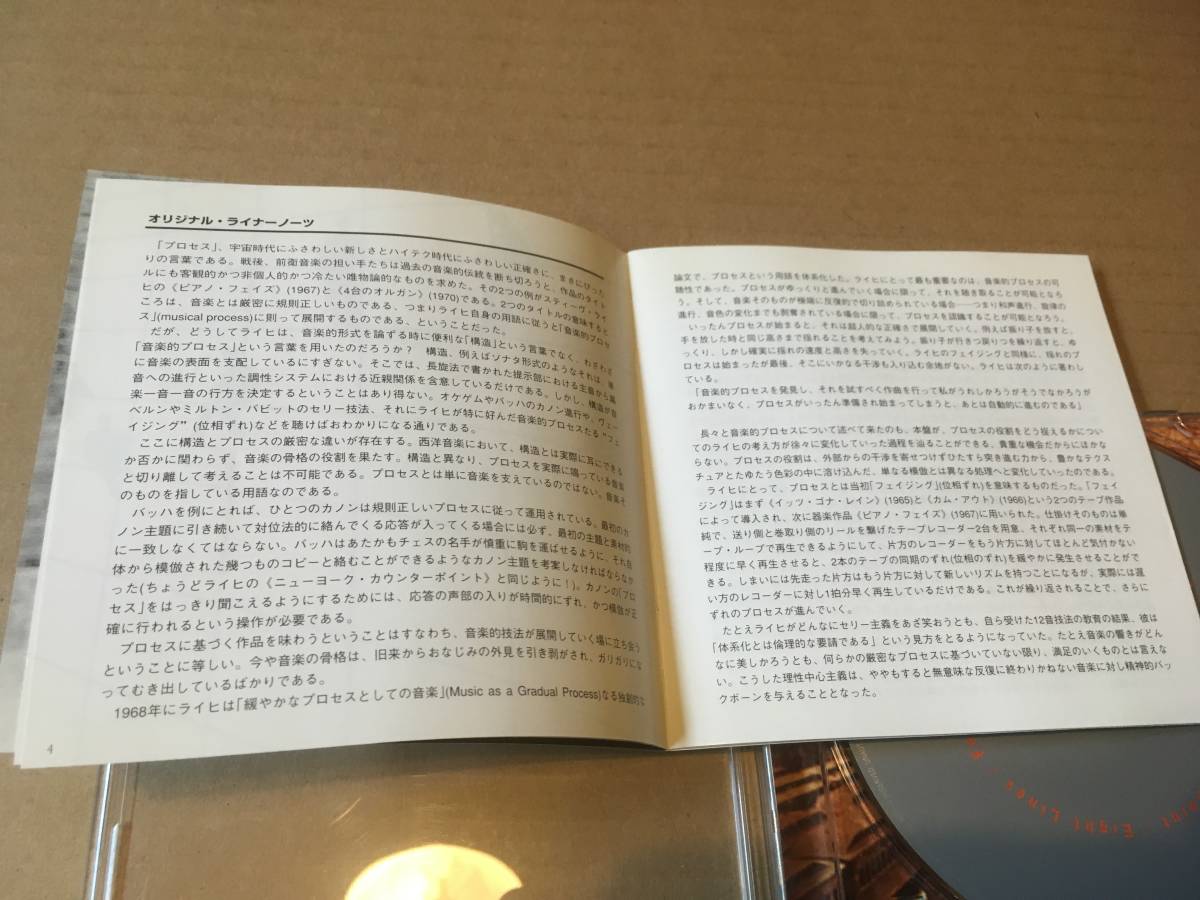 オリジナル・ライナーノーツ
「プロセス」、宇宙時代にふさわしい新しさとハイテク時代にふさわしい正確さに、まさにぴった
りの言葉である。戦後、前衛音楽の担い手たちは過去の音楽的伝統を断ち切ろうと、作品のタイト
ルにも客観的かつ非個人的かつ冷たい唯物論的なものを求めた。その2つの例がスティーヴ・ライ
ヒの《ピアノ・フェイズ》(1967)と《4台のオルガン》(1970)である。2つのタイトルの意味すると
ころは、音楽とは厳密に規則正しいものである、つまりライヒ自身の用語に従うと「音楽的プロセ
ス」(musical process)に則って展開するものである、ということだった。
だが、どうしてライヒは、音楽的形式を論ずる時に便利な「構造」という言葉でなく、わざわざ
「音楽的プロセス」という言葉を用いたのだろうか? 構造、例えばソナタ形式のようなそれは、単
に音楽の表面を支配しているにすぎない。そこでは、長旋法で書かれた提示部における主音から属
音への進行といった調性システムにおける近親関係を含意しているだけである。しかし、構造が音
楽一音一音の行方を決定するということはあり得ない。オケゲムやバッハのカノン進行や、ヴェー
ベルンやミルトン・バビットのセリー技法、それにライヒが特に好んだ音楽的プロセスたる“フェ
イジング”(位相ずれ)などを聴けばおわかりになる通りである。
ここに構造とプロセスの厳密な違いが存在する。西洋音楽において、構造とは実際に耳にできる
か否かに関わらず、音楽の骨格の役割を果たす。構造と異なり、プロセスを実際に鳴っている音楽
と切り離して考えることは不可能である。プロセスとは単に音楽を支えているのではない。音楽そ
のものを指している用語なのである。
バッハを例にとれば、ひとつのカノンは規則正しいプロセスに従って運用されている。最初のカ
ノン主題に引き続いて対位法的に絡んでくる応答が入ってくる場合には必ず、最初の主題と素材的
に一致しなくてはならない。バッハはあたかもチェスの名手が慎重に駒を運ばせるように、それ自
体から模倣された幾つものコピーと絡むことができるようなカノン主題を考案しなければならなか
った(ちょうどライヒの《ニューヨーク・カウンターポイント》と同じように!)。カノンの「プロ
セス」をはっきり聞こえるようにするためには、応答の声部の入りが時間的にずれ、かつ模倣が正
確に行われるという操作が必要である。
プロセスに基づく作品を味わうということはすなわち、音楽的技法が展開していく場に立ち会う
ということに等しい。今や音楽の骨格は、旧来からおなじみの外見を引き剥がされ、ガリガリにな
ってむき出しているばかりである。
1968年にライヒは「緩やかなプロセスとしての音楽」(Music as a Gradual Process)なる独創的な
4
論文で、プロセスという用語を体系化した。ライヒにとって最も重要なのは、音楽的プロセスの可
聴性であった。プロセスがゆっくりと進んでいく場合に限って、それを聴き取ることが可能となろ
う。そして、音楽そのものが極端に反復的で切り詰められている場合――つまり和声進行、旋律の
進行、音色の変化までも剥奪されている場合に限って、プロセスを認識することが可能となろう。
いったんプロセスが始まると、それは超人的な正確さで展開していく。例えば振り子を放すと、
手を放した時と同じ高さまで揺れることを考えてみよう。振り子が行きつ戻りつを繰り返すと、ゆ
っくり、しかし確実に揺れの速度と高さを失っていく。ライヒのフェイジングと同様に、揺れのプ
ロセスは始まったが最後、そこにいかなる干渉も入り込む余地がない。ライヒは次のように著わし
ている。
「音楽的プロセスを発見し、それを試すべく作曲を行って私がうれしかろうがそうでなかろうが
おかまいなく、プロセスがいったん準備され始まってしまうと、あとは自動的に進むのである」
長々と音楽的プロセスについて述べて来たのも、本盤が、プロセスの役割をどう捉えるかについ
てのライヒの考え方が徐々に変化していった過程を辿ることができる、貴重な機会だからにほかな
らない。プロセスの役割は、外部からの干渉を寄せつけずひたすら突き進む力から、豊かなテクス
チュアとたゆたう彩色の中に溶け込んだ、単なる模倣とは異なる処理へと変化していったのである。
ライヒにとって、プロセスとは当初「フェイジング」(位相ずれ)を意味するものだった。「フェイ
ジング」はまず《イッツ・ゴナ・レイン》(1965)と《カム・アウト》(1966)という2つのテープ作品
によって導入され、次に器楽作品《ピアノ・フェイズ》(1967)に用いられた。仕掛けそのものは単
純で、送り側と巻取り側のリールを繋げたテープレコーダー2台を用意、それぞれ同一の素材をテ
ープ・ループで再生できるようにして、片方のレコーダーをもう片方に対してほとんど気付かない
程度に早く再生させると、2本のテープの同期のずれ(位相のずれ)を緩やかに発生させることがで
きる。しまいには先走った片方はもう片方に対して新しいリズムを持つことになるが、実際には遅
い方のレコーダーに対し1拍分早く再生しているだけである。これが繰り返されることで、さらに
ずれのプロセスが進んでいく。
たとえライヒがどんなにセリー主義をあざ笑おうとも、自ら受けた12音技法の教育の結果、彼は
「体系化とは倫理的な要請である」という見方をとるようになっていた。たとえ音楽の響きがどん
なに美しかろうとも、何らかの厳密なプロセスに基づいていない限り、満足のいくものとは言えな
い。こうした理性中心主義は、ややもすると無意味な反復に終わりかねない音楽に対し精神的バッ
クボーンを与えることとなった。
Eight Lines